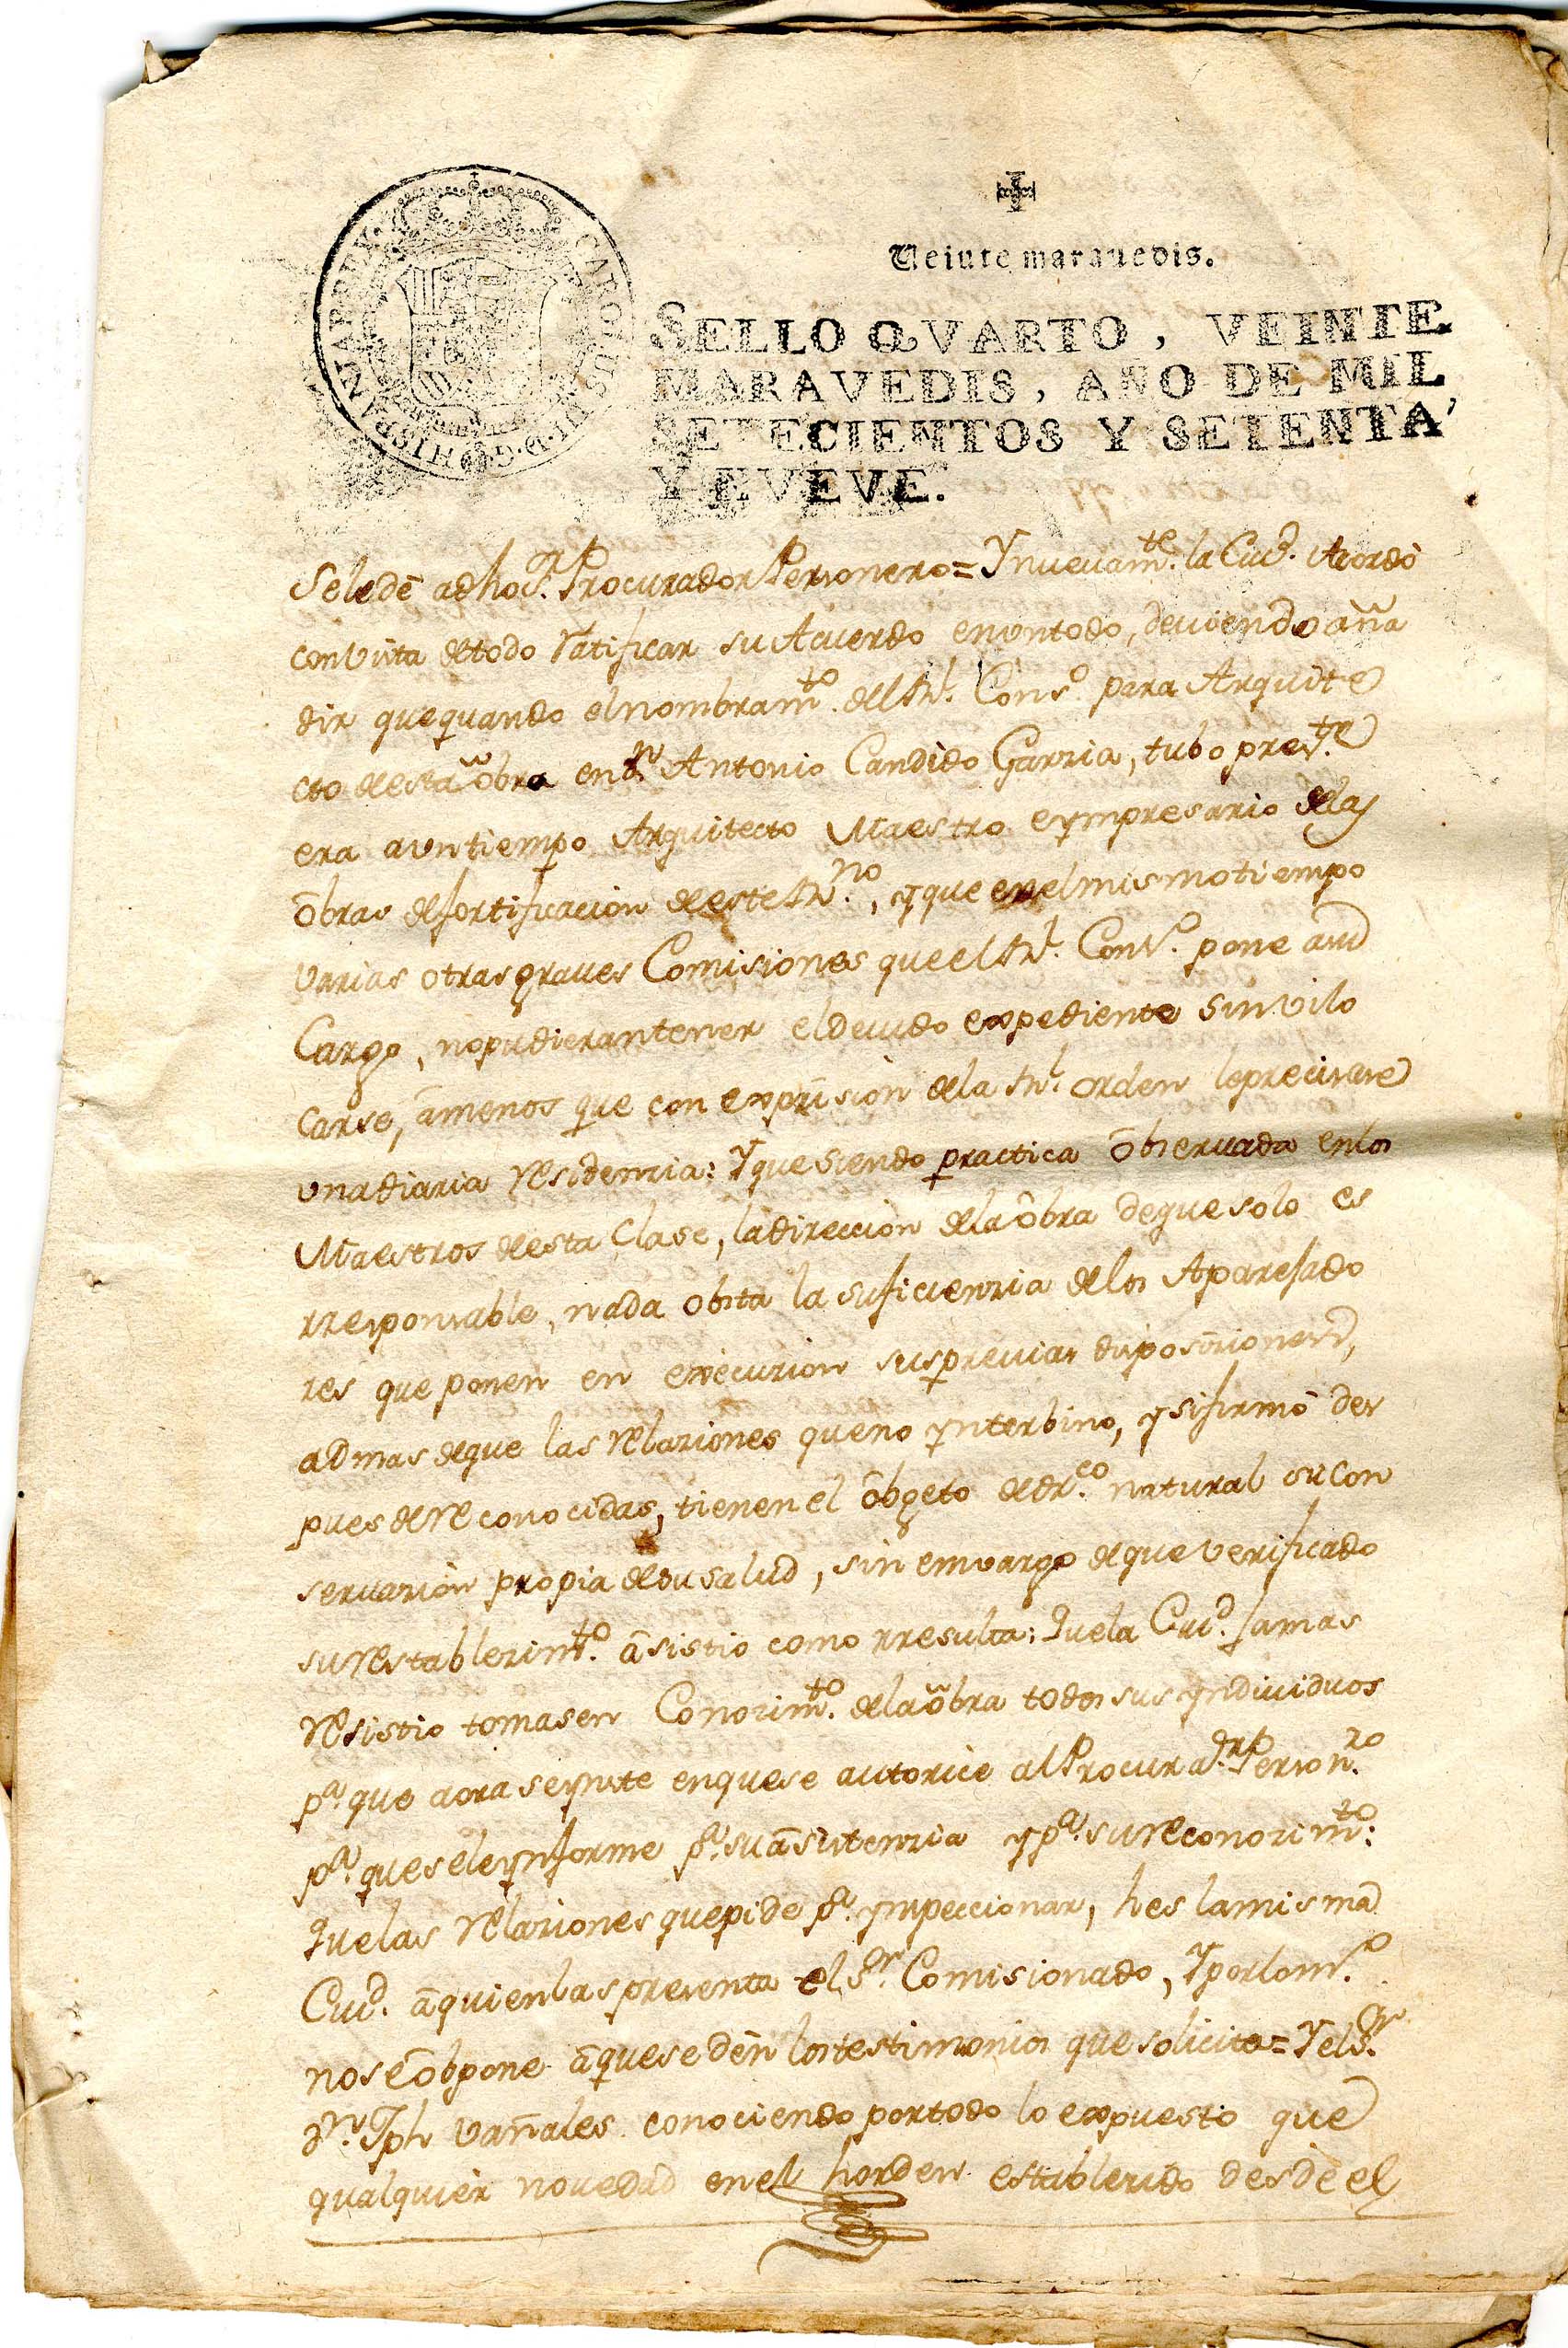 CAROLUS III D.G. HISPANIAR REX
Veinte maravedis.
SELLO QVARTO, VEINTE
MARAVEDIS, AÑO DE MIL
SETECIENTOS Y SETENTA
Y NVEVE.
Se le dé a dho Sr. Procurador Personero = Y nuevamte. la Ciud. Acordó
con vista de todo ratificar su Acuerdo en un todo, deviendo aña
dir que quando el nombramto. del Rl. Conso. para Arquite
cto de esta obra en Dn. Antonio Candido Garzia, tubo preste.
era a un tiempo Arquitecto Maestro e ympresario de las
obras de fortificacion de este Rno., y que en el mismo tiempo
varias otras graves Comisiones que el Rl. Conso. pone a su
Cargo, no pudieran tener el devido expediente sin vilo
carse, a menos que con expresion de la Rl. orden le precisase
una diaria residenzia: Y que siendo practica observada en los
Maestros de esta Clase, la direccion de la obra de que solo es
rresponsable, nada obsta la suficienzia de los Aparejado
res que ponen en execuzion sus previas disposiziones,
admas de que las relaziones que no ynterbino, y si firmó des
pues de reconocidas, tienen el obgeto de drco. natural su con
servazion propia de su salud, sin embargo de que verificado
su restablezimto. asistio como rresulta: Que la Ciud. jamas
resistio tomasen Conozimto. de la obra todos sus yndividuos
pa. que aora se ynste en que se autorice al Procuradr. Personro.
pa. que se le ynforme pa. su asistenzia y pa. su reconozimto:
Que las relaziones que pide pa. ynspeccionar, hes la misma
Ciud. a quien las presenta el Sr. Comisionado, Y por lo mo.
no se obpone a que se dén los testimonios que solicita = Y el Sr.
Dn. Jph Vañales conociendo por todo lo expuesto que
qualquier novedad en el horden establezido desde el